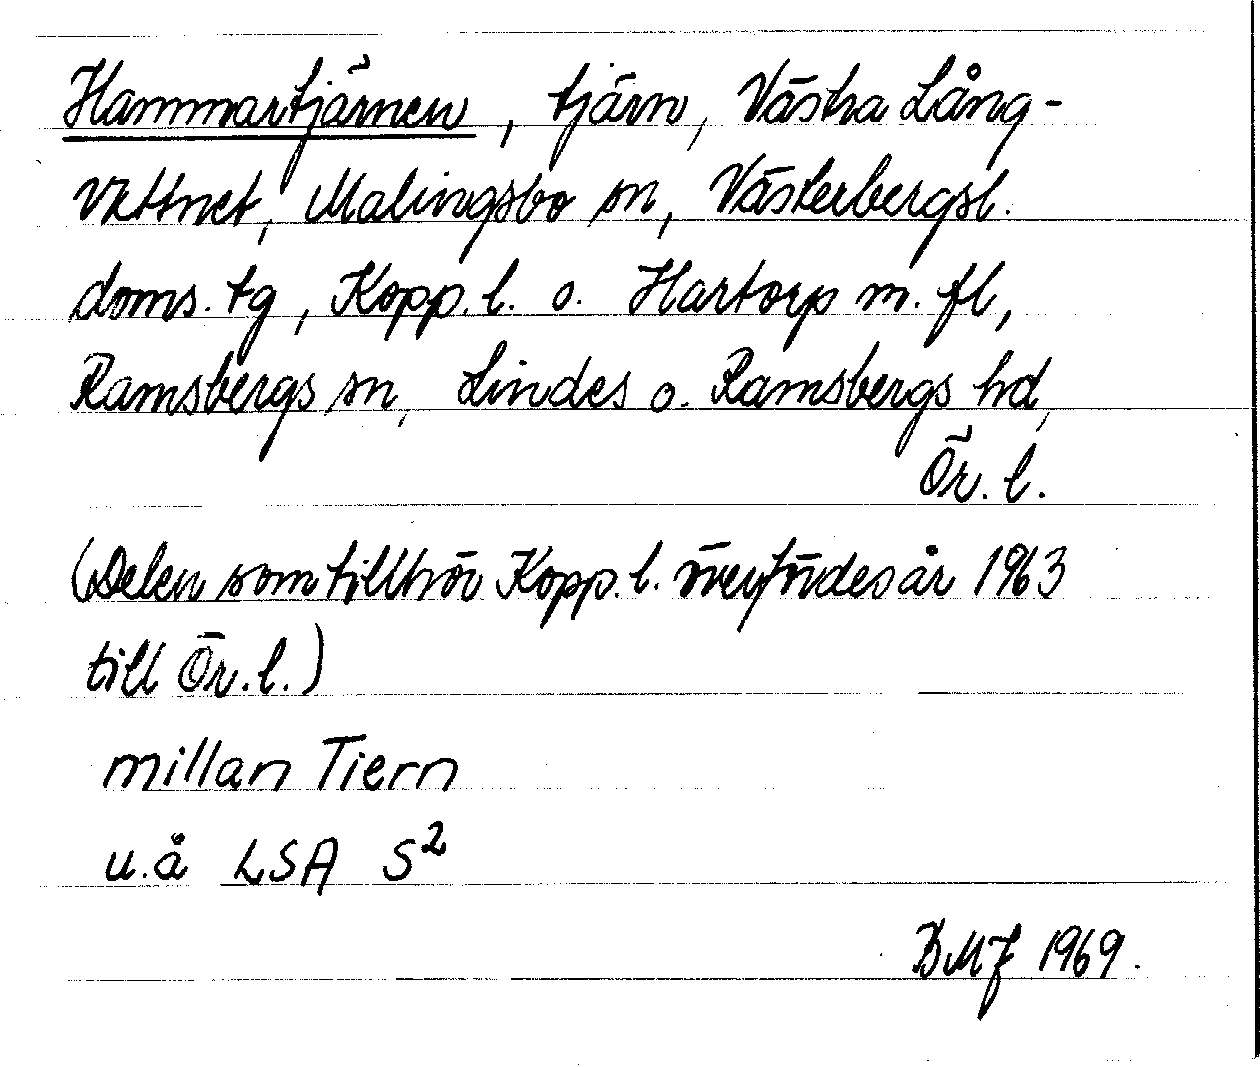 Hammartjärnen, tjärn, Västra Lång-
vattnet, Malingsbo sn, Västerbergsl.
doms. tg, Kopp. l. o. Hartorp m. fl,
Ramsbergs sn, Lindes o. Ramsbergs hd,
Ör. l.
(Delen som tillhör Kopp. l. överfördes år 1963
till Ör. l.)
millan Tiern
u.å LSA S²
BMJ 1969.